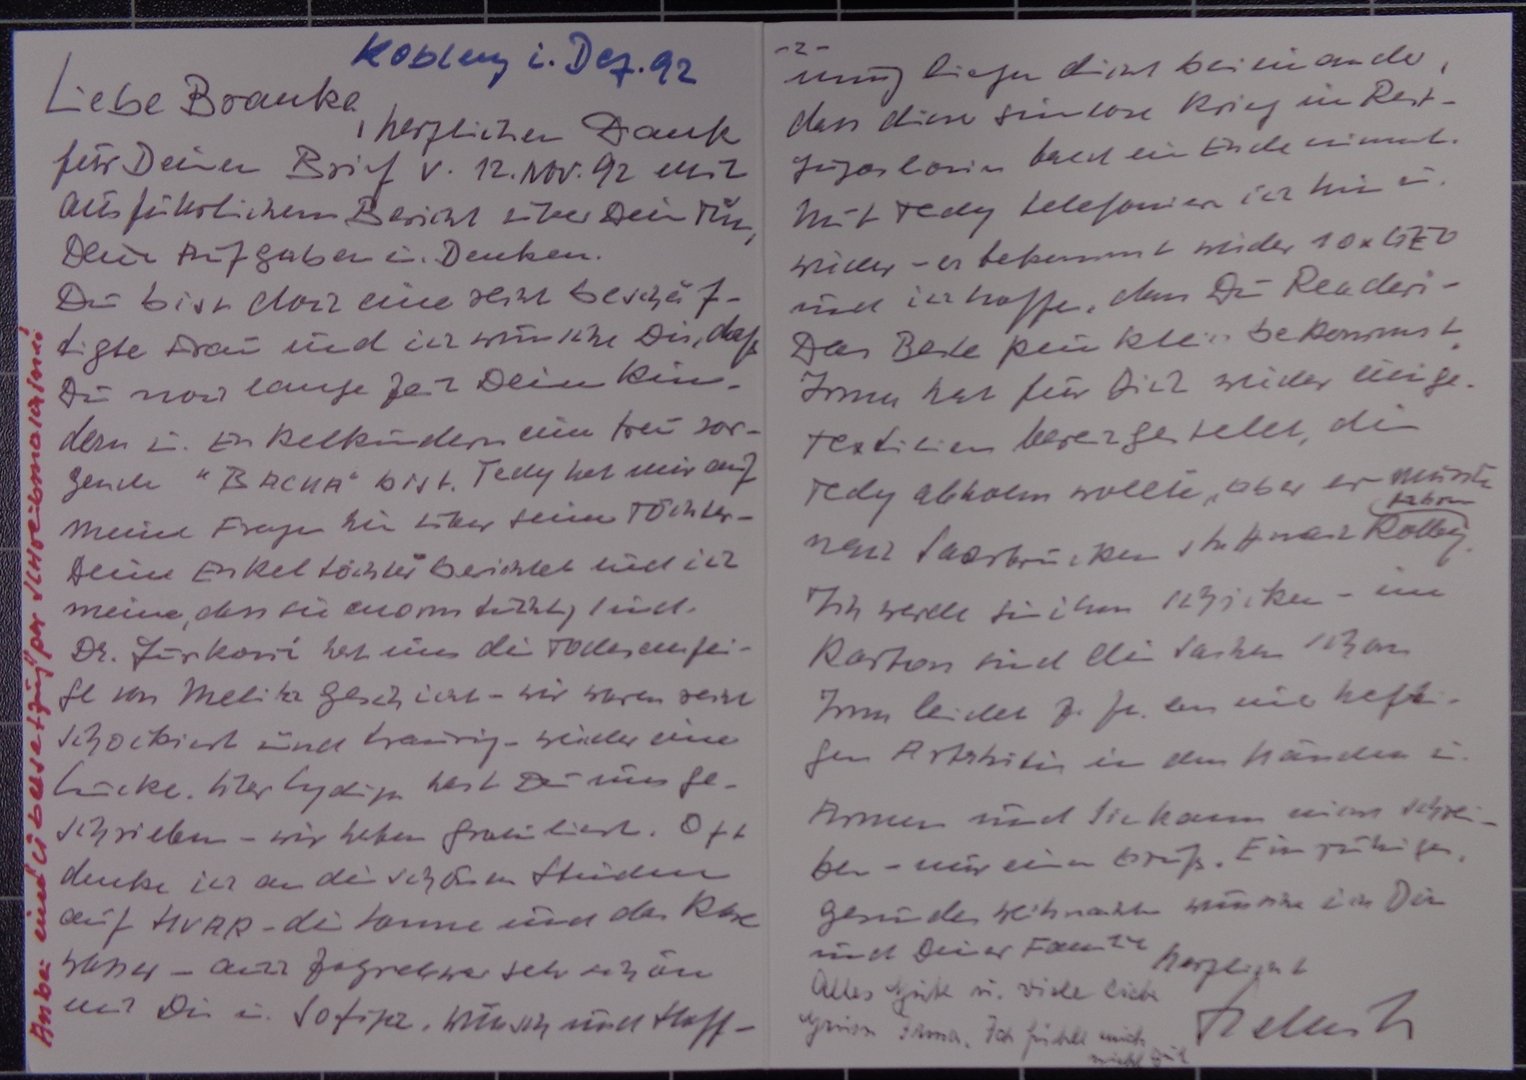 Koblenz i. Dez. 92
Liebe Branka,
herzlichen Dank
für Deinen Brief v. 12. Nov. 92 mit
ausführlichem Bericht über Dein Tun,
Dein Aufgaben u. Denken.
Du bist doch eine recht beschäf-
tigte Frau und ich wünsche Dir, daß
Du noch lange Zeit Deinen Kin-
dern u. Enkelkindern eine treu sor-
gende "BACKA" bist. Tedy hat mir auf
meine Fragen hin über seine Töchter-
Deine Enkeltöchter berichtet und ich
meine, dass sie enorm tüchtig sind.
Dr. Jurković hat uns die Todesanzei-
ge von Melita geschickt - wir waren recht
schockiert und traurig - wieder eine
Lücke. Über Lydija hast Du uns ge-
schrieben - wir haben gratuliert. Oft
denke ich an die schönen Stunden
auf HVAR - die Sonne und das klare
Wasser - auch Zagreb war sehr schön
mit Dir u. Sofija. Wunsch und Hoff-
Anbei eine Übersetzung per Schreibmaschine!
-2-
nung liegen dicht beieinander,
dass dieser sinnlose Krieg in Rest-
jugoslavien bald ein Ende nimmt.
Mit Tedy telefoniere ich hin u.
wieder - er bekommt wieder 10x GEO
und ich hoffe, dass Du Readers-
Das Beste pünktlich bekommst.
Irma hat für Dich wieder einige
Textilien bereitgestellt, die
Tedy abholen wollte, aber er müsste
fahren
nach Saarbrücken statt nach Kolbg.
Ich werde sie ihm schicken - im
Karton sind die Sachen schon
Irma leidet z. Zt. an einer hefti-
gen Arthritis in den Händen u.
Armen und Sie kann nicht schrei-
ben - nur einen Gruß. Ein ruhiges,
gesundes Weihnachten wünsche ich Dir
und Deiner Familie
herzlichst
Alles Gute u. viele liebe
Grüsse Irma. Ich fühle mich
nicht gut